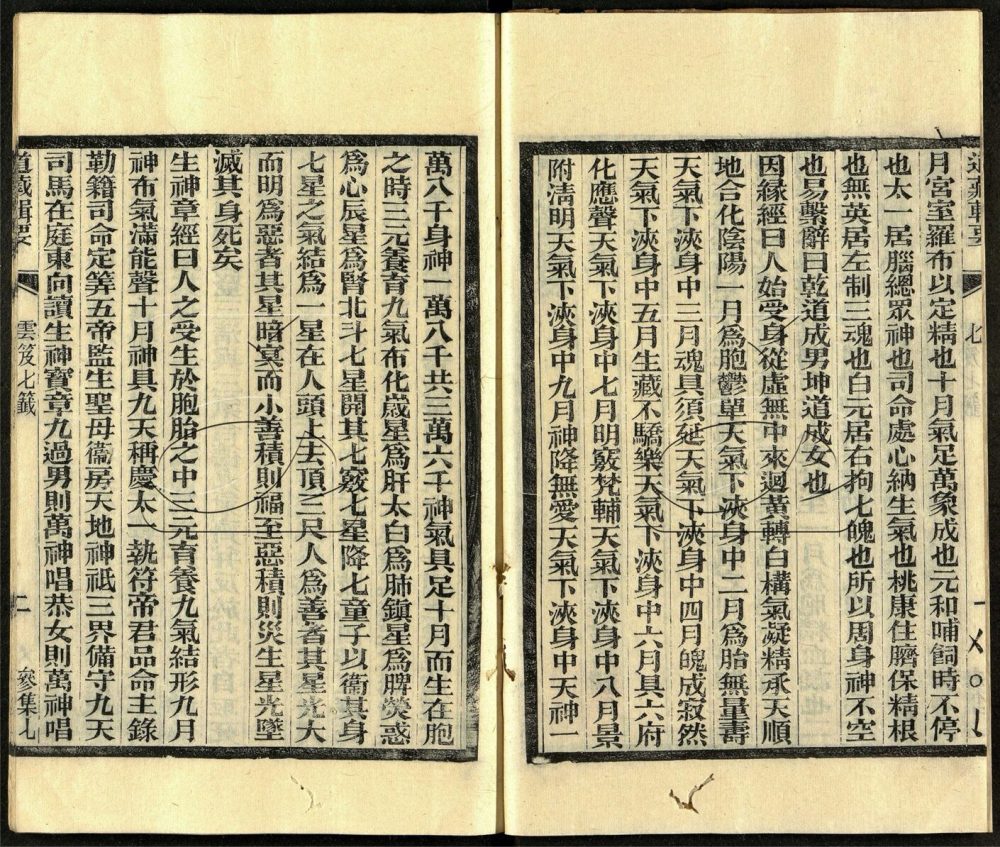 月宮室羅布以定精也十月氣足萬象成也元和哺飼時不停
也太一居腦總眾神也司命處心納生氣也桃康住臍保精根
也無英居左制三魂也白元居右拘七魄也所以周身神不空
也易繫辭曰乾道成男坤道成女也
因緣經曰人始受身從虛無中來迴黃轉白構氣凝精承天順
地合化陰陽一月爲胞鬱單天氣下浹身中二月爲胎無量壽
天氣下浹身中三月魂具須延天氣下浹身中四月魄成寂然
天氣下浹身中五月生藏不驕樂天氣下浹身中六月具六府
化應聲天氣下浹身中七月明竅梵輔天氣下浹身中八月景
附清明天氣下浹身中九月神降無愛天氣下浹身中天神一
萬八千身神一萬八千共三萬六千神氣具足十月而生在胞
之時三元養育九氣布化歲星爲肝太白爲肺鎮星爲脾熒惑
爲心辰星爲腎北斗七星開其七竅七星降七童子以衞其身
七星之氣結爲一星在人頭上去頂三尺人爲善者其星光大
而明爲惡者其星暗冥而小善積則福至惡積則災生星光墜
滅其身死矣
生神章經曰人之受生於胞胎之中三元育養九氣結形九月
神布氣滿能聲十月神具九天稱慶太一執符帝君品命主錄
勒籍司命定筭五帝監生聖母衞房天地神祇三界備守九天
司馬在庭東向讀生神寶章九過男則萬神唱恭女則萬神唱
道藏輯要
雲笈七籤
二
參集七